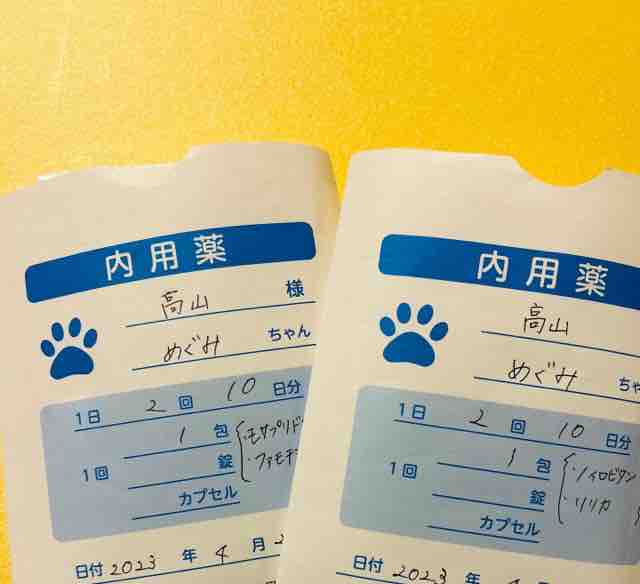 内用薬
高山 様
めぐみ ちゃん
1日 2 回 10 日分
1回 1 包
錠
カプセル
・モサプリド
・ファモチ
日付 2023 年 4 月 2
内用薬
高山
めぐみ ちゃ
1日 2 回 10 日分
1回 1 包
錠
カプセル
・ノイロビタン
・リリカ
日付 2023 年 4